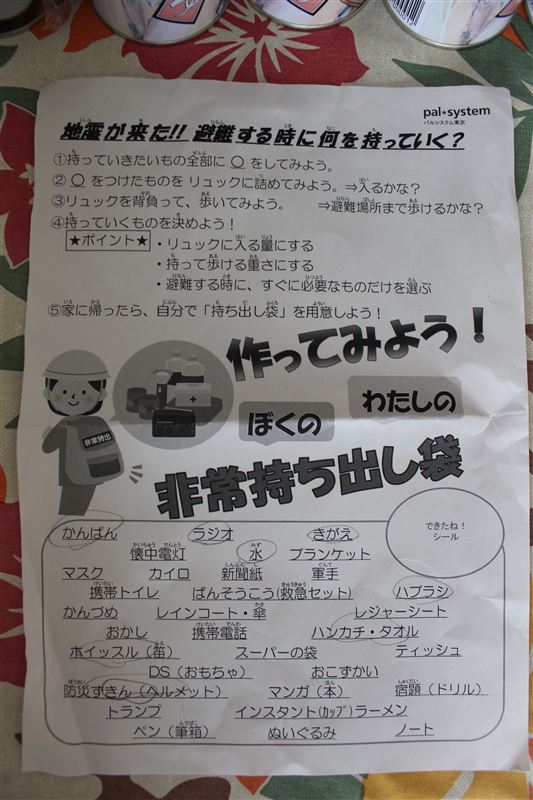 pal*system
パルシステム東京
地震が来た!! 避難する時に何を持っていく?
①持っていきたいもの全部に ○ をしてみよう。
② ○ をつけたものを リュックに詰めてみよう。⇒入るかな?
③リュックを背負って、歩いてみよう。 ⇒避難場所まで歩けるかな?
④持っていくものを決めよう!
★ポイント★ ・リュックに入る量にする
・持って歩ける重さにする
・避難する時に、すぐに必要なものだけを選ぶ
⑤家に帰ったら、自分で「持ち出し袋」を用意しよう!
作ってみよう!
非常持出
ぼくの わたしの
非常持ち出し袋
できたね!
シール
かんぱん ラジオ きがえ
懐中電灯 水 ブランケット
マスク カイロ 新聞紙 軍手
携帯トイレ ばんそうこう(救急セット) ハブラシ
かんづめ レインコート・傘 レジャーシート
おかし 携帯電話 ハンカチ・タオル
ホイッスル(笛) スーパーの袋 ティッシュ
DS(おもちゃ) おこずかい
防災ずきん(ヘルメット) マンガ(本) 宿題(ドリル)
トランプ インスタント(カップ)ラーメン
ペン(筆箱) ぬいぐるみ ノート